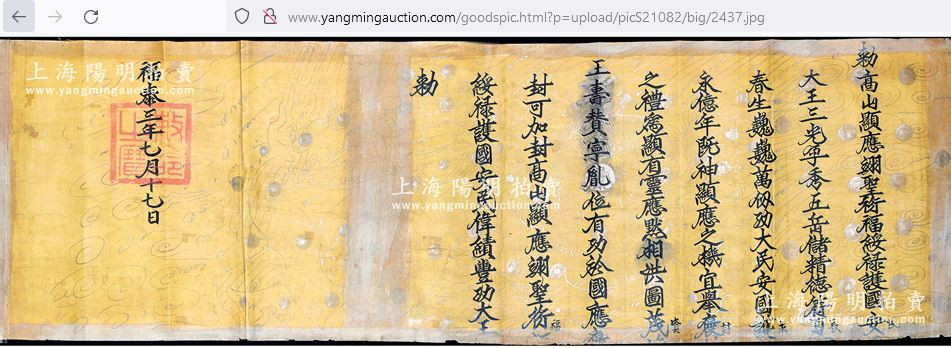 www.yangmingauction.com/goodspic.html?p=upload/picS21082/big/2437.jpg
勅高山顯應翊聖衍福綏祿護國安
大王三光孚秀五岳儲精德
春生巍巍萬仭功大民安國
永億年既神顯應之機宜舉
之禮爲顯有靈應黙相洪圖茂
王壽賛寧胤位有功於國應
封可加封高山顯應翊聖衍福
綏祿護國安民偉績豐功大王
勅
福泰三年七月十七日
敕命之寶
上海陽明拍賣
www.yangmingauction.com
上海陽明拍賣
www.yangmingauction.com
上海陽明拍賣
www.yangmingauction.com